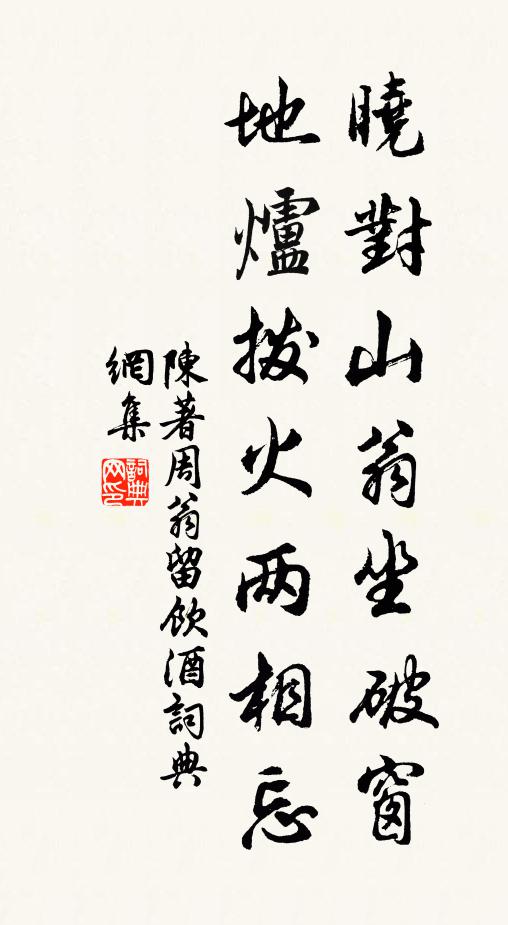 曉對山翁坐破窗
地爐撥火两相忘
陳著周翁留飲酒詞典
網集
詞典網印